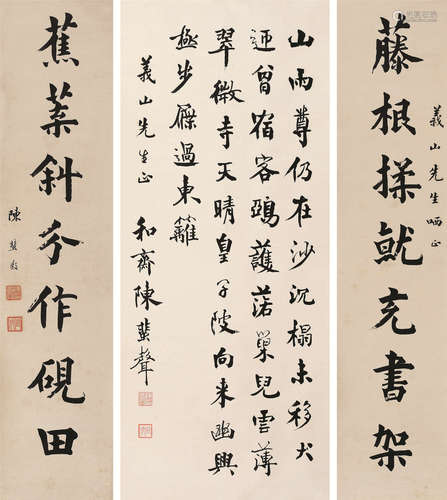 藤根揉就充書架
義山先生哂正
山雨尊仍在沙沉榻未移犬
迎曾宿客鵶護落巢兒雲薄
翠微寺天晴皇子陂向來幽興
極步屧過東籬
義山先生正 和齋陳蜚聲
蕉葉斜分作硯田
陳蜚聲